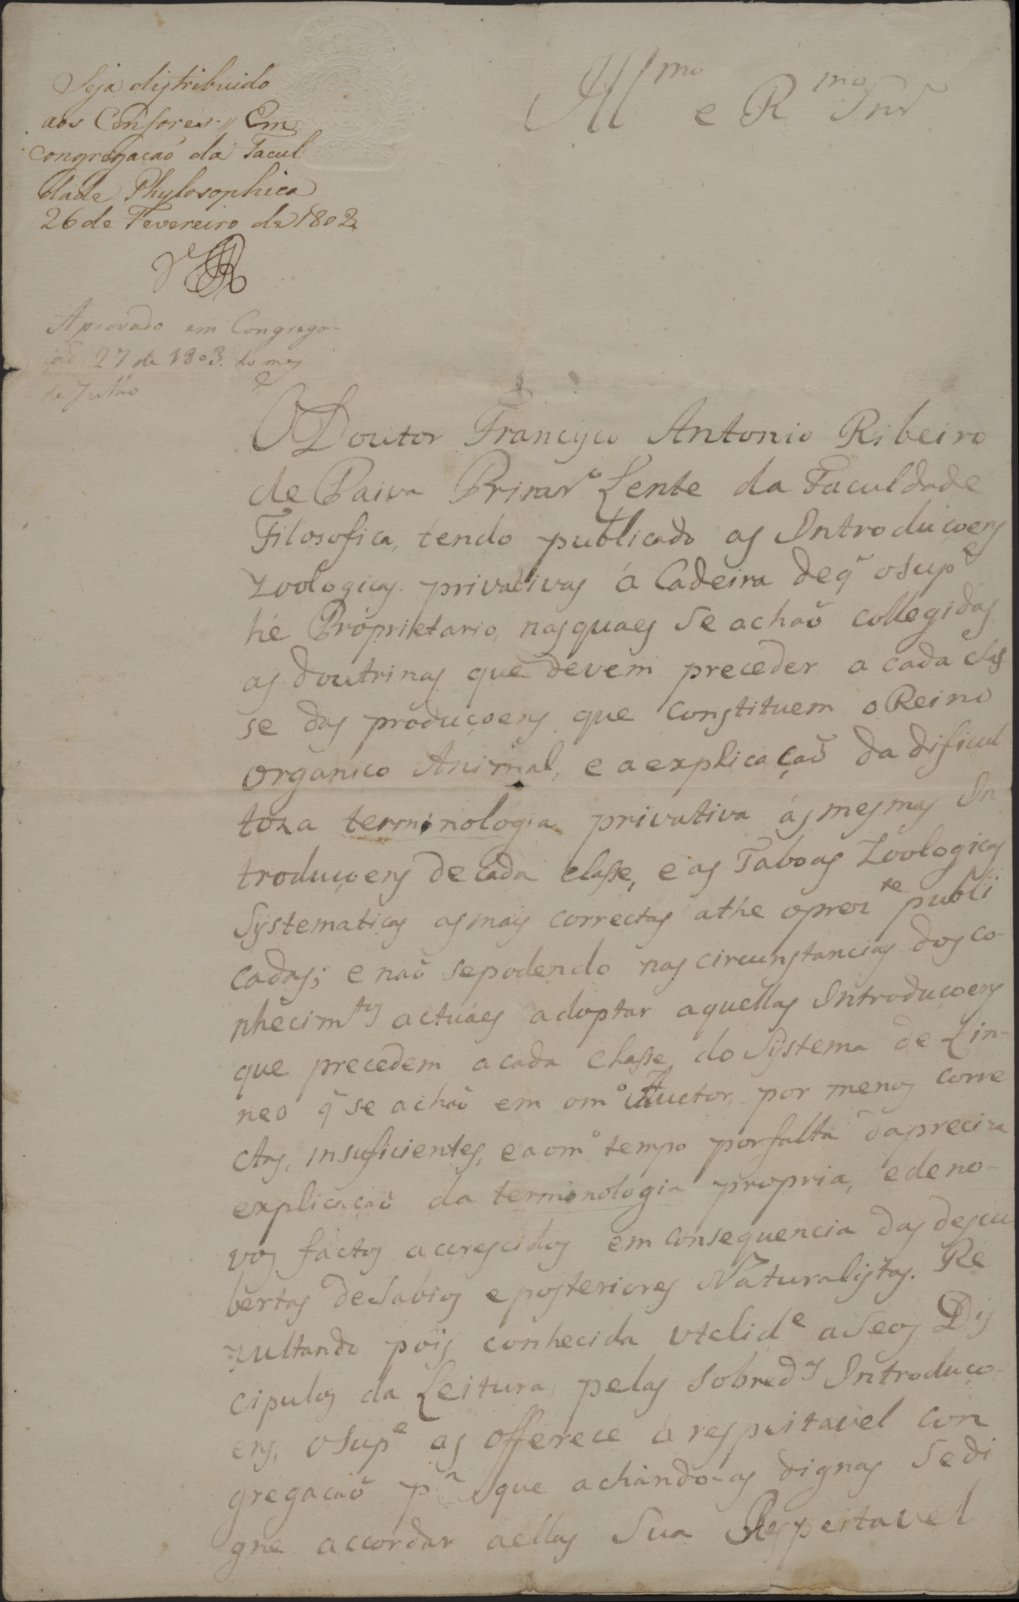 Seja distribuido
aos Censores // Em
Congregação da Facul
dade Phylosophica
26 de Fevereiro de 1802
Illmo e Rmo Snr
Aprovado em Congrega-
çaõ 27 de 1803. do mez
de Julho
O Doutor Francisco Antonio Ribeiro
de Paiva Primro Lente da Faculdade
Filosofica, tendo publicado as Introduçoens
Zoologicas privativas á Cadeira de q̃ o supe
hé Proprietario, nas quaes se achaõ collegidas
as doutrinas que devem preceder a cada Clas
se das producçoens que constituem o Reino
organico Animal, e a explicaçaõ da dificul
toza terminologia privativa ás mesmas In
troduçoens de cada classe, e as Taboas Zoologicas
Systematicas as mais correctas athe o prezte publi
cadas; e naõ se podendo nas circunstancias dos co-
nhecimtos actuáes adoptar aquellas Introduçoens
que precedem a cada Classe do Systema de Lin-
neo q̃ se achaõ em o mo Auctor, por menos corre
ctas, insuficientes, e ao mo tempo por falta da preciza
explicaçaõ da terminologia propria, e de no-
vos factos accrescidos em consequencia das descu
bertas de Sabios e posteriores Naturalistas. Re
zultando pois conhecida utelide a seos Dis
cipulos da Leitura pelas sobreds Introduço-
ens, o supe as offerece á respeitavel Con
gregaçaõ pa que achando-as dignas se di
gne accordar a ellas Sua Respeitavel